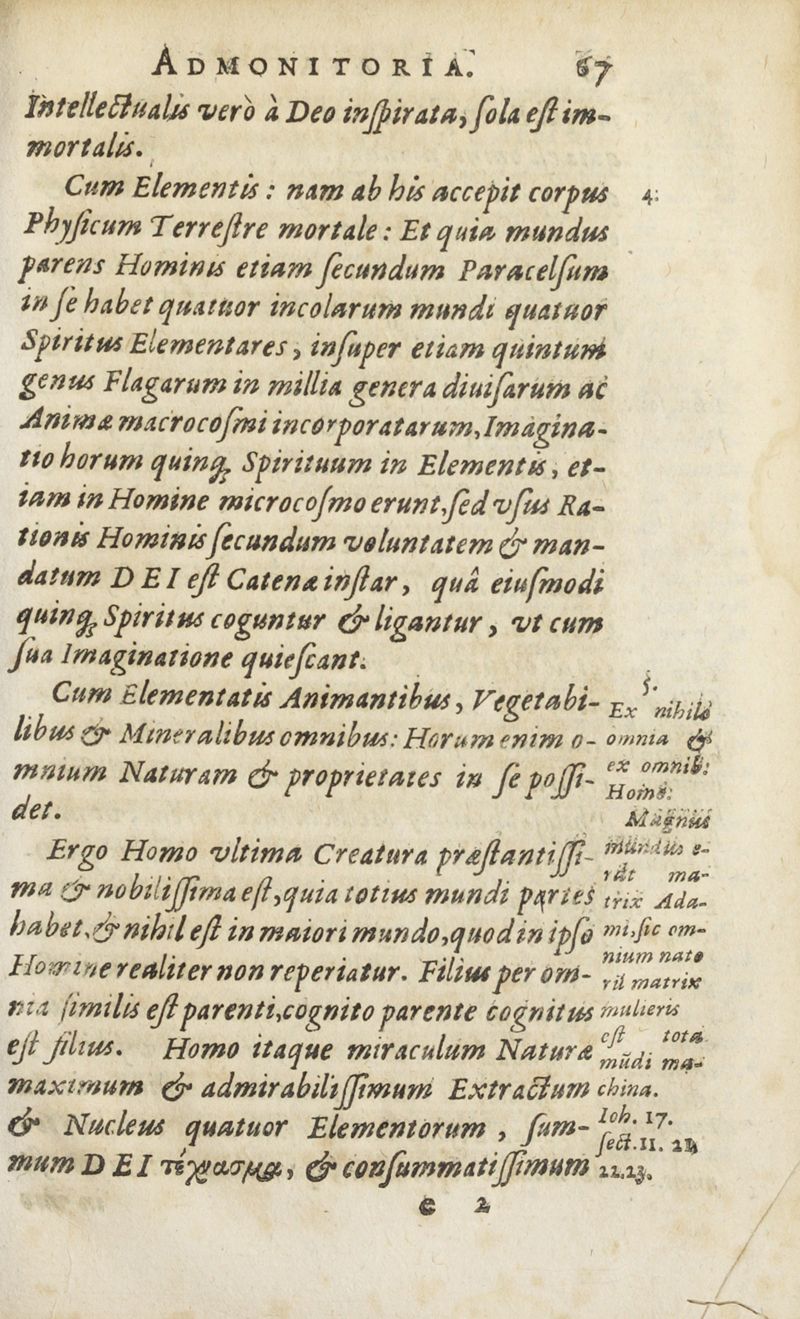 ADMONITORIA. 67
Intellectualis verò à Deo inspirata, sola est im-
mortalis.
Cum Elementis: nam ab his accepit corpus
4.
Physicum Terrestre mortale: Et quia mundus
parens Hominis etiam secundum Paracelsum
in se habet quatuor incolarum mundi quatuor
Spiritus Elementares, insuper etiam quintum
genus Flagarum in millia genera diuisarum ac
Animæ macrocosmi incorporatarum, Imagina-
tio horum quinq; Spirituum in Elementis, et-
iam in Homine microcosmo erunt, sed vsus Ra-
tionis Hominis secundum voluntatem & man-
datum DEI est Catenæ instar, quâ eiusmodi
quinq; Spiritus coguntur & ligantur, vt cum
sua Imaginatione quiescant.
Cum Elementatis Animantibus, Vegetabi-
libus & Mineralibus omnibus: Horum enim o-
mnium Naturam & proprietates in se possi-
det.
Ergo Homo vltima Creatura præstantissi-
ma & nobilissima est, quia totius mundi partes
habet, & nihil est in maiori mundo, quod in ipso
Homine realiter non reperiatur. Filius per om-
nia similis est parenti, cognito parente cognitus
est filius. Homo itaque miraculum Naturæ
maximum & admirabilissimum Extractum
& Nucleus quatuor Elementorum, sum-
mum DEI & consummatissimum
5.
Ex nihilo
omnia &
ex omnib:
Homo:
Magnus
mundus e-
rat ma-
trix Ada-
mi, sic om-
nium nato
rũ matrix
mulieris
est tota
mũdi ma-
china.
Ioh. 17.
sect. 11. 21.
22.23.
e 2